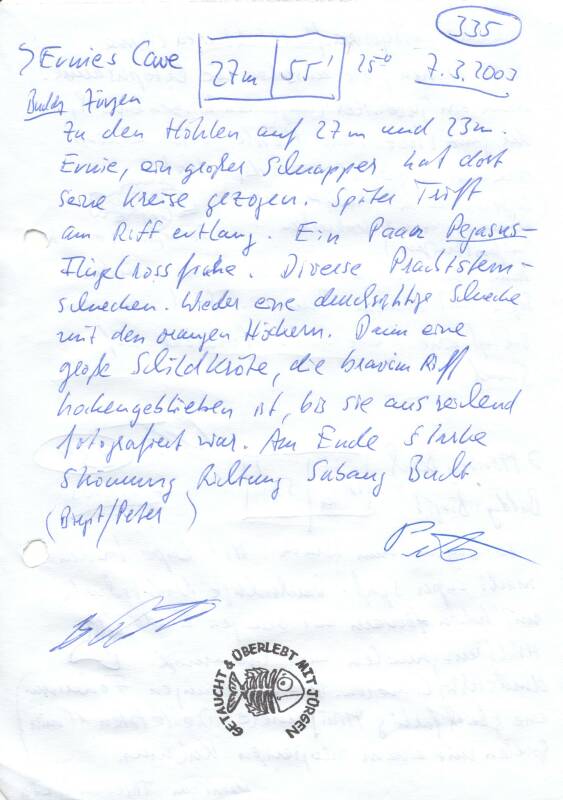 335
Ernies Cave 27m 55' 25° 7.3.2003
Buddy Jürgen
Zu den Höhlen auf 27m und 23m.
Ernie, ein großer Schnapper hat dort
seine Kreise gezogen. Später Trift
am Riff entlang. Ein Paar Pegasus-
Flügelrossfische. Diverse Prachtstern-
schnecken. Wieder eine durchsichtige Schnecke
mit den orangen Höckern. Dann eine
große Schildkröte, die brav im Riff
hocken geblieben ist, bis sie ausreichend
fotografiert war. Am Ende starke
Strömung Richtung Sabang Bucht.
(Birgit/Peter)
GETAUCHT & ÜBERLEBT MIT JÜRGEN